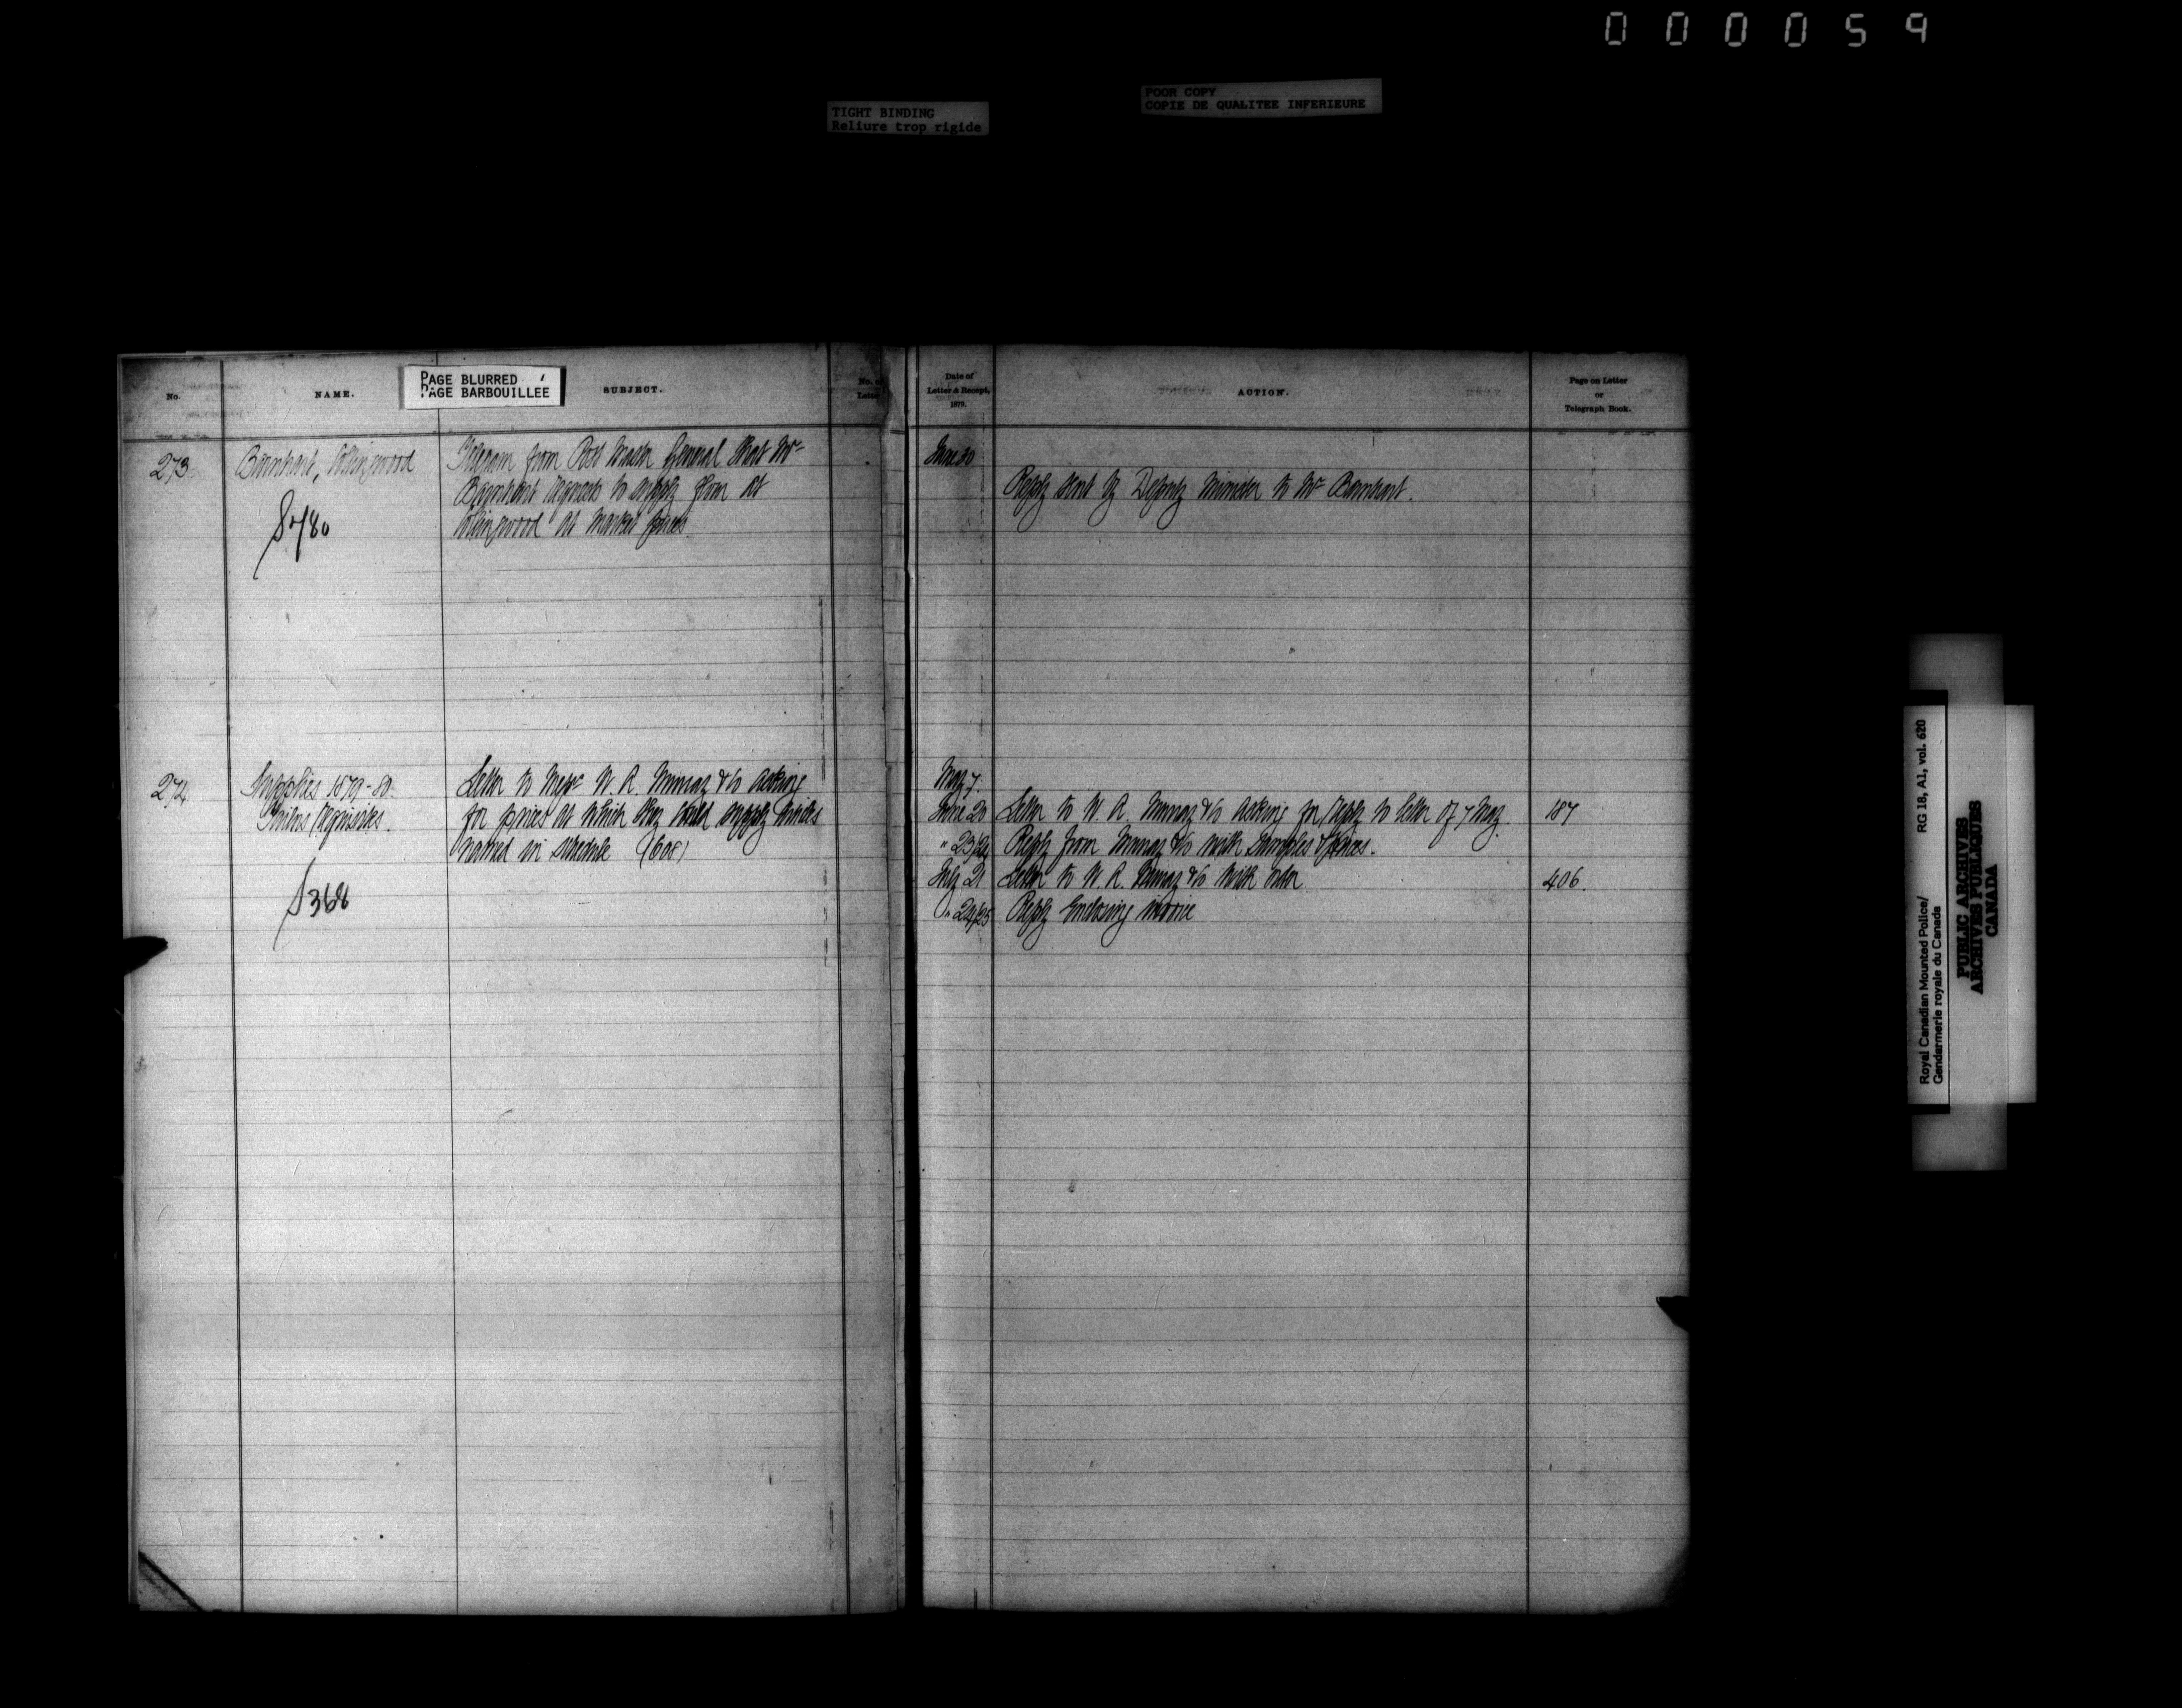 000059
TIGHT BINDING
Reliure trop rigide
POOR COPY
COPIE DE QUALITEE INFERIEURE
PAGE BLURRED
PAGE BARBOUILLEE
No.
NAME.
SUBJECT.
No. of
Letter
Date of
Letter & Receipt,
1879.
ACTION.
Page on Letter
or
Telegraph Book.
273
Barnhart, Collingwood
Telegram from Post Master General that Mr
Barnhart agrees to supply flour at
Collingwood at market prices.
June 30
Reply sent by Deputy Minister to Mr Barnhart.
274
Supplies 1879-80.
Letter to Messrs W. R. Murray & Co asking
for prices at which they could supply articles
named in schedule
368
May 7.
June 20 Letter to W. R. Murray & Co asking for reply to letter of 7 May 187
" 23/24 Reply from Murray & Co with samples & prices.
July 21 Letter to W. R. Murray & Co with order 406.
" 24/25 Reply enclosing invoice
Royal Canadian Mounted Police/ RG 18, A1, vol. 620
Gendarmerie royale du Canada
PUBLIC ARCHIVES
ARCHIVES PUBLIQUES
CANADA